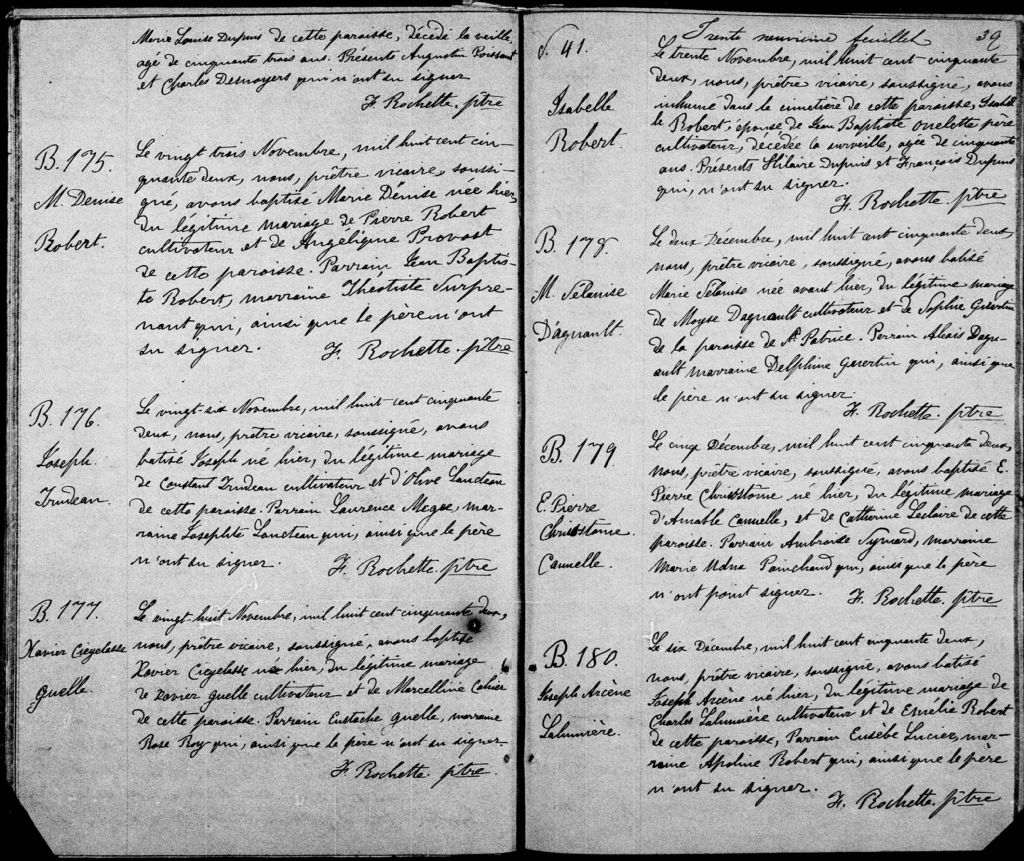 Marie Louise Dupuis de cette paroisse, décédé la veille
agé de cinquante trois ans. Présents Augustin Poissant
et Charles Desnoyers qui n'ont su signer
F. Rochette. ptre
B. 175
M. Denise
Robert.
Le vingt trois Novembre, mil huit cent cin-
quante deux, nous, prêtre vicaire, soussi-
gné, avons baptisé Marie Denise née hier,
du légitime mariage de Pierre Robert
cultivateur et de Angélique Provost
de cette paroisse. Parrain, Jean Baptis-
te Robert, marraine Théotiste Surpre-
nant qui, ainsi que le père n'ont
su signer.
F. Rochette. ptre
B. 176.
Joseph
Trudeau.
Le vingt-six Novembre, mil huit-cent cinquante
deux, nous, prêtre vicaire, soussigné, avons
batisé Joseph né hier, du légitime mariage
de Constant Trudeau cultivateur et d'Olive Lancteau
de cette paroisse. Parrain Laurence, mar-
raine Josephte Lancteau qui, ainsi que le père
n'ont su signer.
F. Rochette. ptre
B. 177.
Xavier
guelle.
Le vingt-huit Novembre, mil huit cent cinquante deux,
nous, prêtre vicaire, soussigné, avons baptisé
Xavier né hier, du légitime mariage
de Xavier guelle cultivateur et de Marcelline
de cette paroisse. Parrain Eustache guelle, marraine
Rose Roy qui, ainsi que le père n'ont su signer.
F. Rochette. ptre.
Trente neuvième feuillet 39
S. 41.
Isabelle
Robert.
Le trente Novembre, mil huit cent cinquante
deux, nous, prêtre vicaire, soussigné, avons
inhumé dans le cimetière de cette paroisse, Isabel
le Robert, épouse de Jean Baptiste ouelette père
cultivateur, décédée la surveille, agée de cinquante
ans. Présents Hilaire Dupuis et François Dupuis
qui, n'ont su signer.
F. Rochette. ptre
B. 178.
M. Sélanise
Dagnault.
Le deux Décembre, mil huit cent cinquante deux,
nous, prêtre vicaire, soussigné, avons batisé
Marie Sélanise née avant hier, du légitime mariage
de Moyse Dagnault cultivateur et de Sophie Guertin
de la paroisse de St. Patrice. Parrain Alexis Dagn-
ault marraine Delphine Guertin qui, ainsi que
le père n'ont su signer.
F. Rochette. ptre
B. 179.
E. Pierre
Chrisostôme.
Canuelle.
Le cinq Décembre, mil huit cent cinquante deux,
nous, prêtre vicaire, soussigné, avons baptisé E.
Pierre Chrisostôme né hier, du légitime mariage
d'Amable Canuelle, et de Catherine Leclaire de cette
paroisse. Parrain Ambroise, marraine
Marie Painchaud qui, ainsi que le père
n'ont point signer.
F. Rochette. ptre
B. 180.
Joseph Arcène
Lalumière.
Le six Décembre, mil huit cent cinquante deux,
nous, prêtre vicaire, soussigné, avons batisé
Joseph Arcène né hier, du légitime mariage de
Charles Lalumière cultivateur et de Emélie Robert
de cette paroisse, Parrain Eusèbe Lucier, mar-
raine Apoline Robert qui, ainsi que le père
n'ont su signer.
F. Rochette. ptre